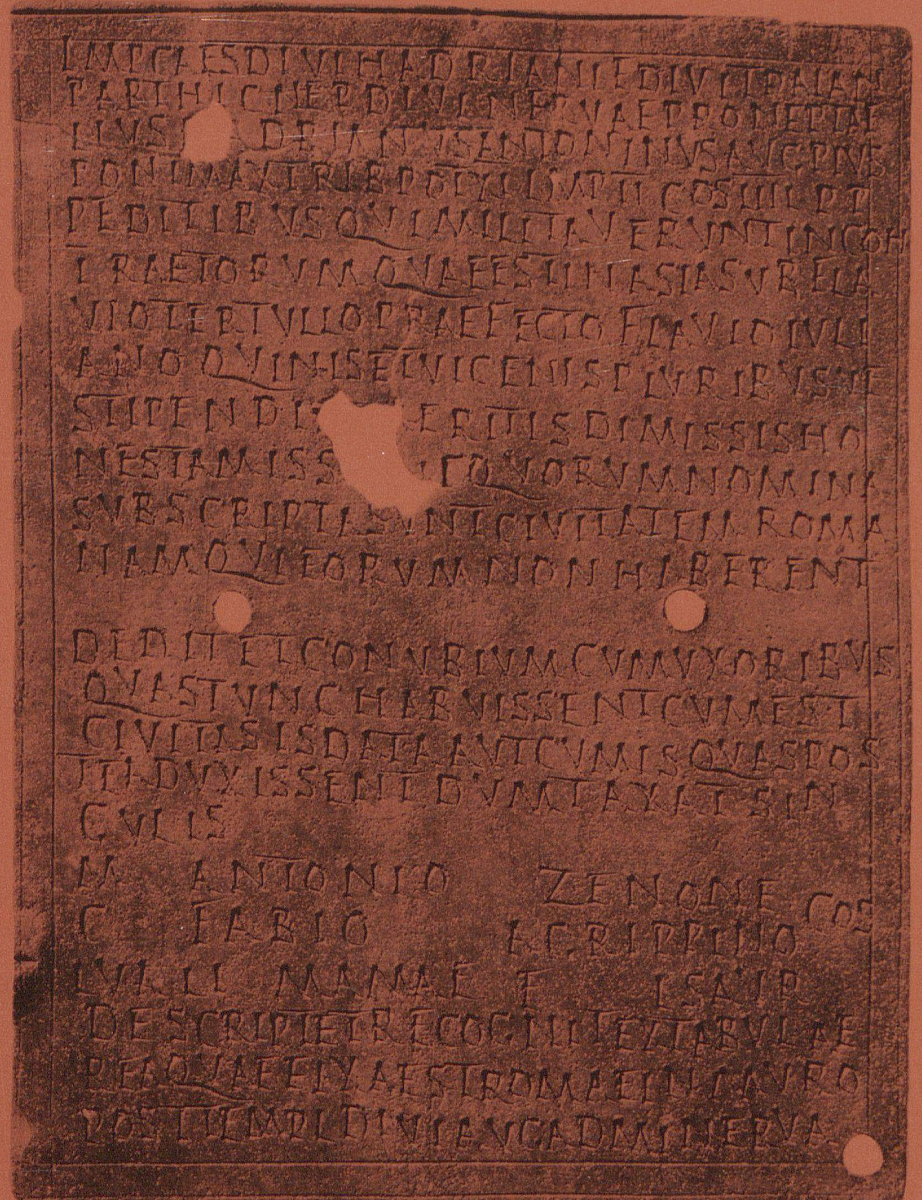 IMP CAES DIVI HADRIANI F DIVI TRAIAN
PARTHICI NEP DIVI NERVAE PRONEP TAE
LIVS HADRIANVS ANTONINVS AVG PIVS
PONT MAX TRIB POT XI IMP II COS IIII P P
PEDITIBVS QVI MILITAVERVNT IN COH
I RAETORVM QVAE EST IN ASIA SVB
TERTVLLO PRAEFECTO FLAVIO IVLI
ANO QVINIS ET VICENIS PLVRIBVSVE
STIPENDI ERITIS DIMISSIS HO
NESTA MISS QVORVM NOMINA
SVBSCRIPTA SVNT CIVITATEM ROMA
NAM QVI EORVM NON HABERENT
DEDIT ET CONVBIVM CVM VXORIBVS
QVAS TVNC HABVISSENT CVM EST
CIVITAS IS DATA AVT CVM IS QVAS POS
TEA DVXISSENT DVMTAXAT SIN
GVLIS
M ANTONIO ZENONE COS
C FABIO AGRIPPINO
MAMAE F ISAVR
DESCRIPT ET RECOGNIT EX TABVLA AE
REA QVAE FIXA EST ROMAE IN MVRO
POST TEMPL DIVI AVG AD MINERVA